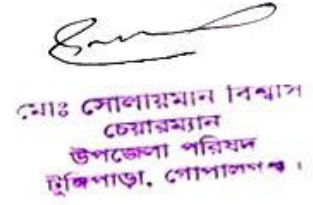 মোঃ সোলায়মান বিশ্বাস
চেয়ারম্যান
উপজেলা পরিষদ
টুঙ্গিপাড়া, গোপালগঞ্জ।